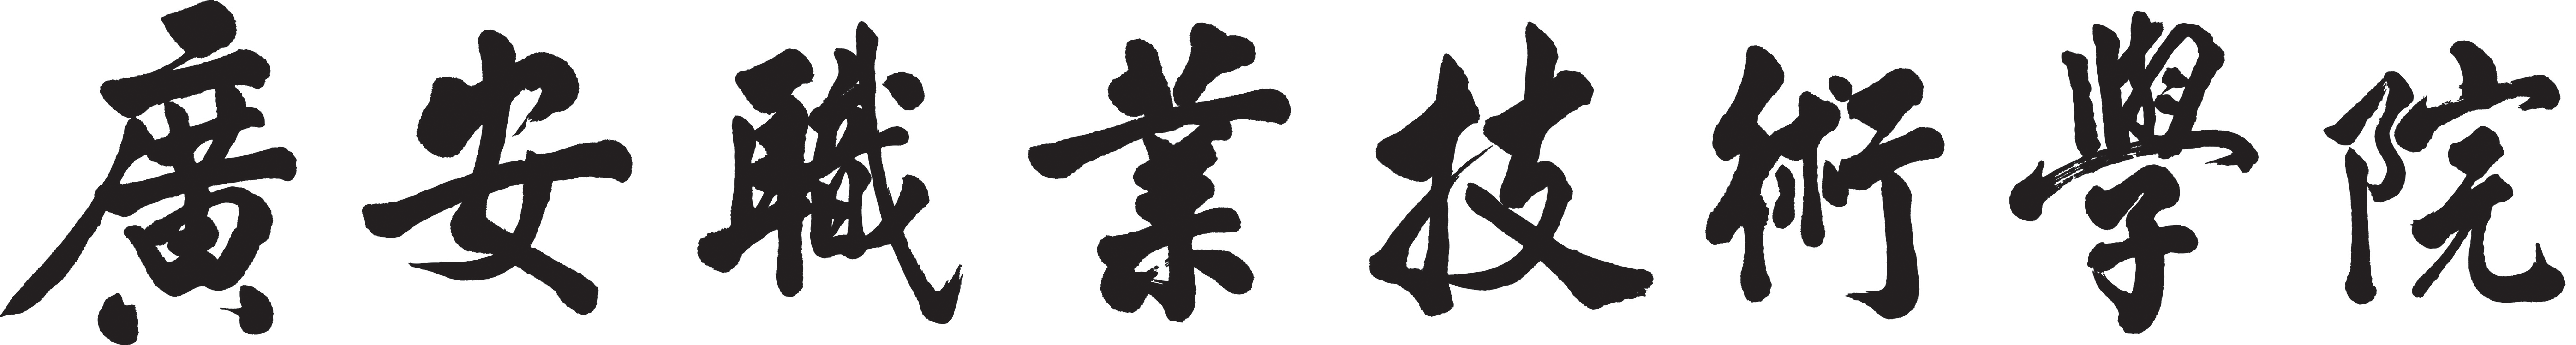 廣安職業技術學院